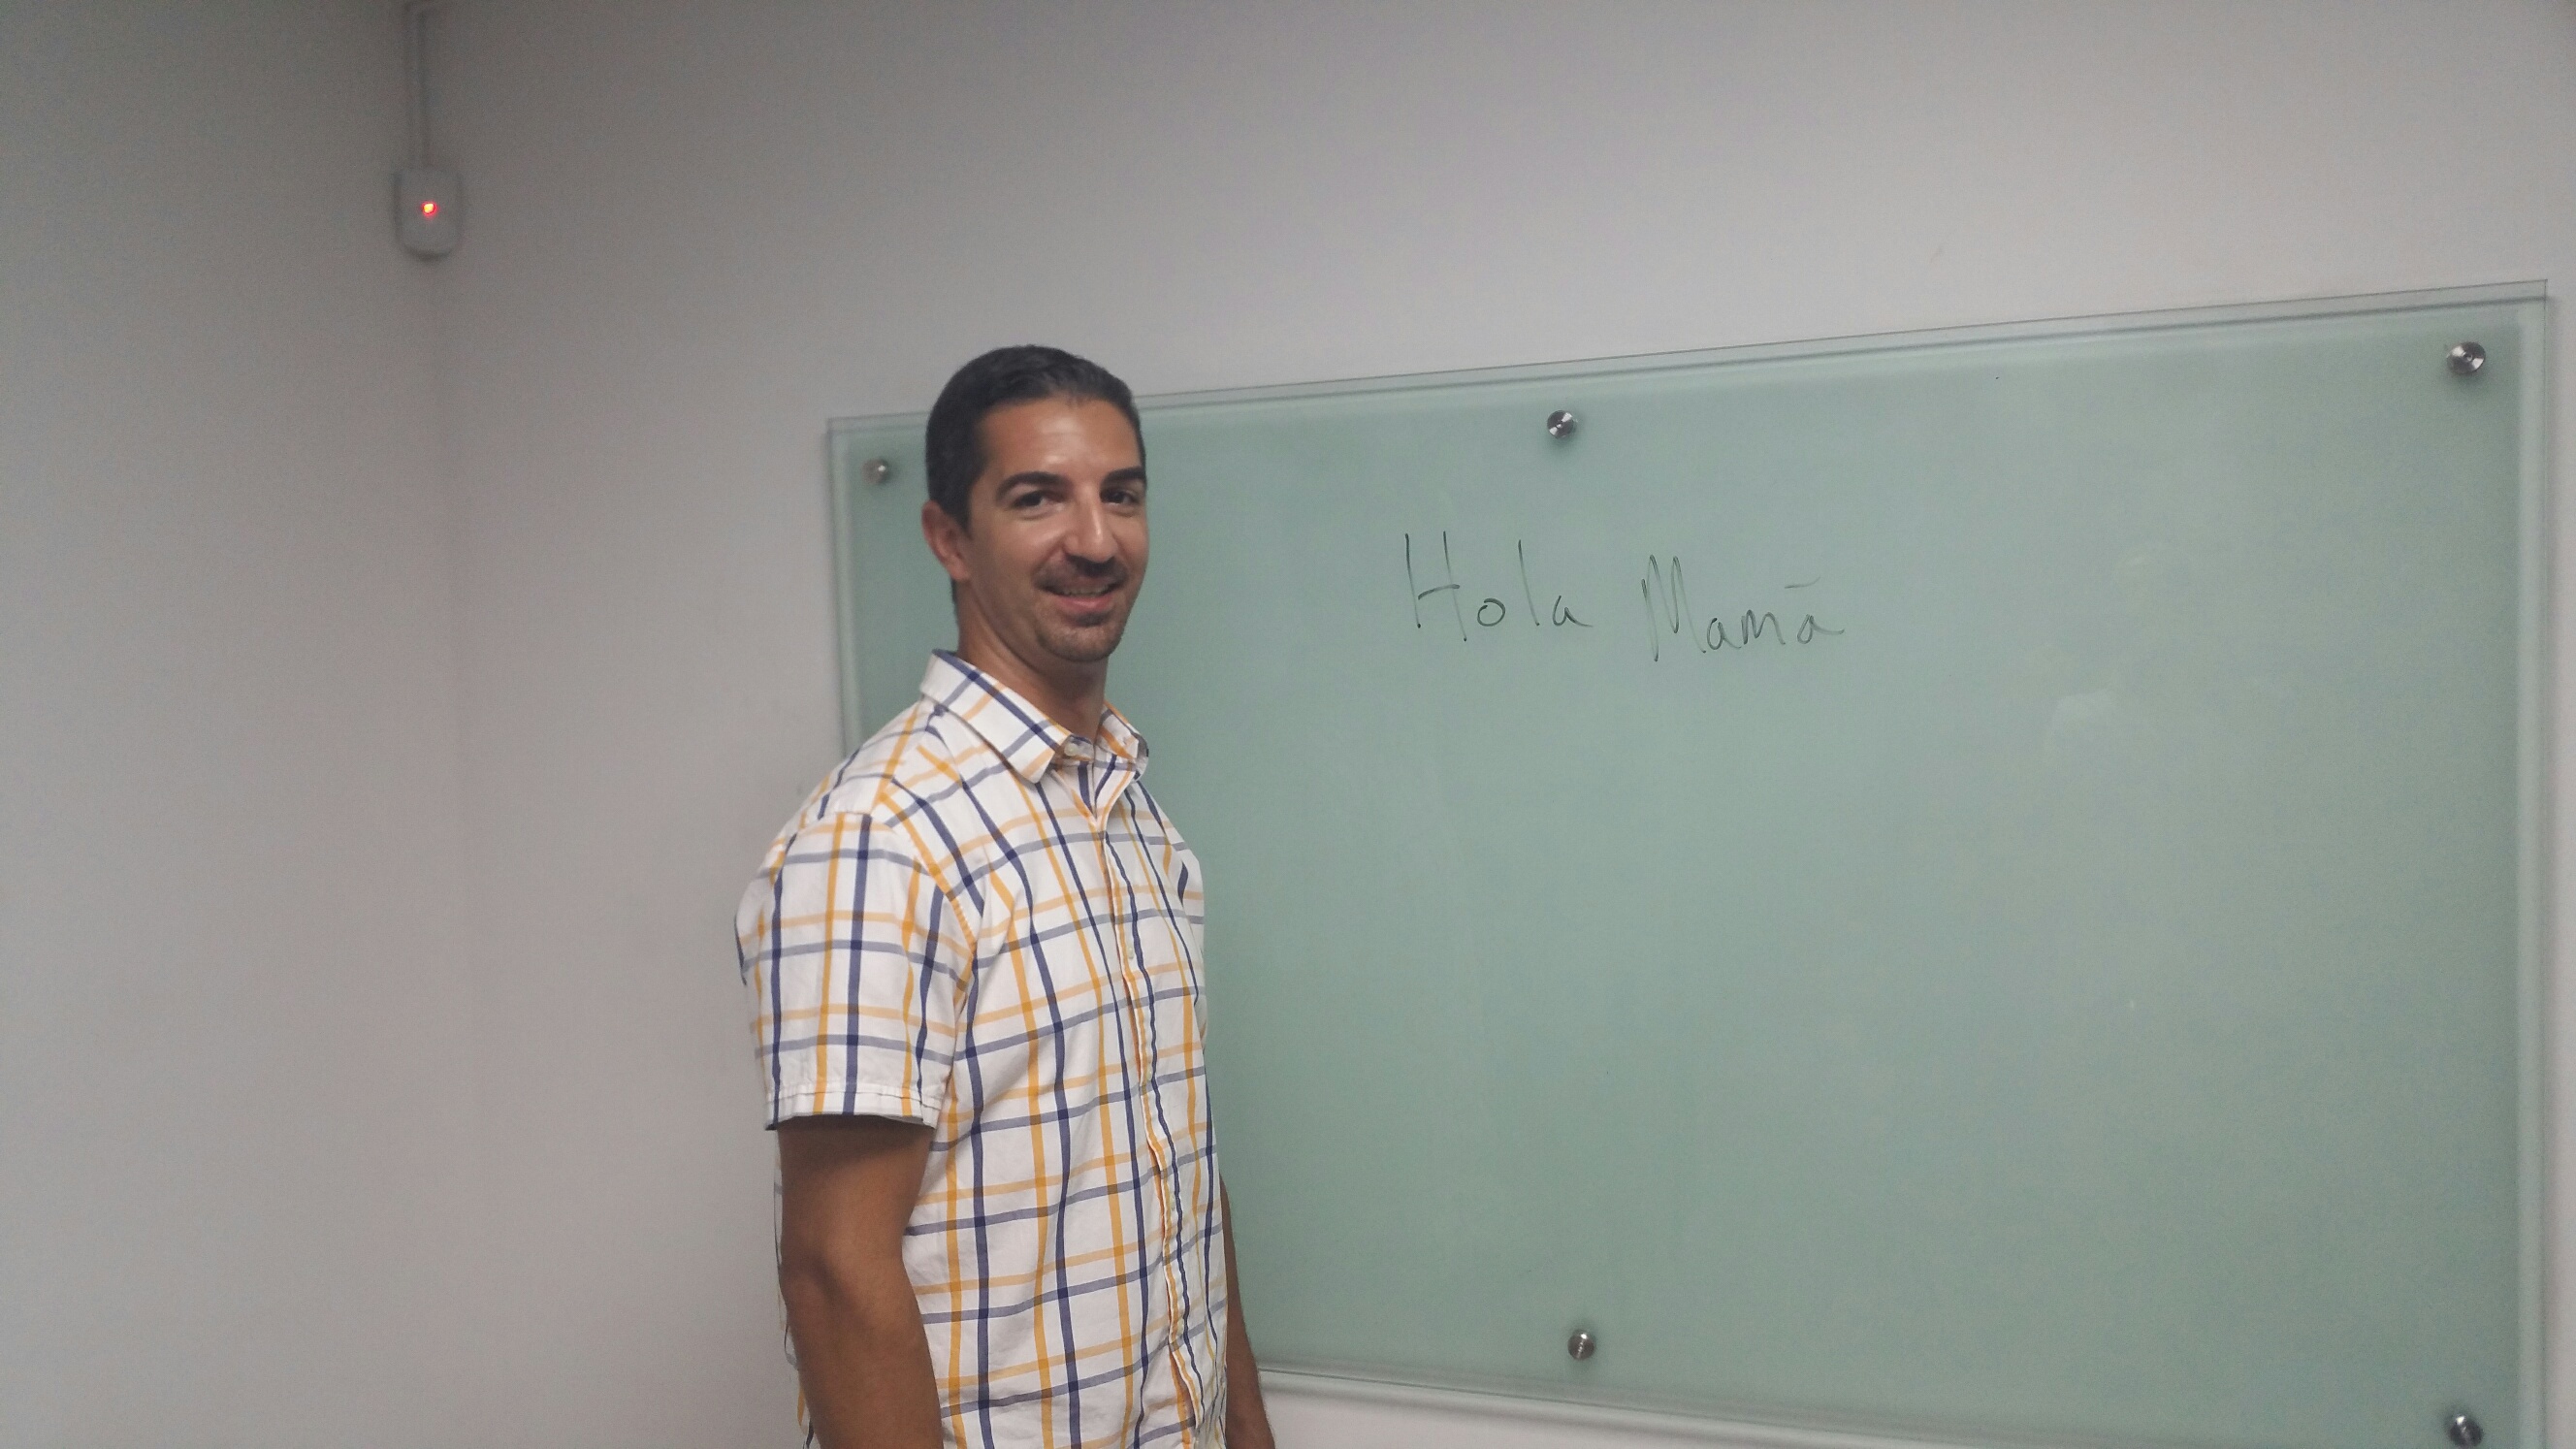 Hola Mamá